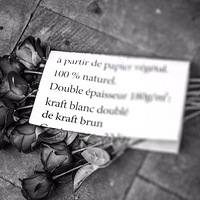 à partir de papier végétal.
100 % naturel.
Double épaisseur 180g/m²:
kraft blanc doublé
de kraft brun